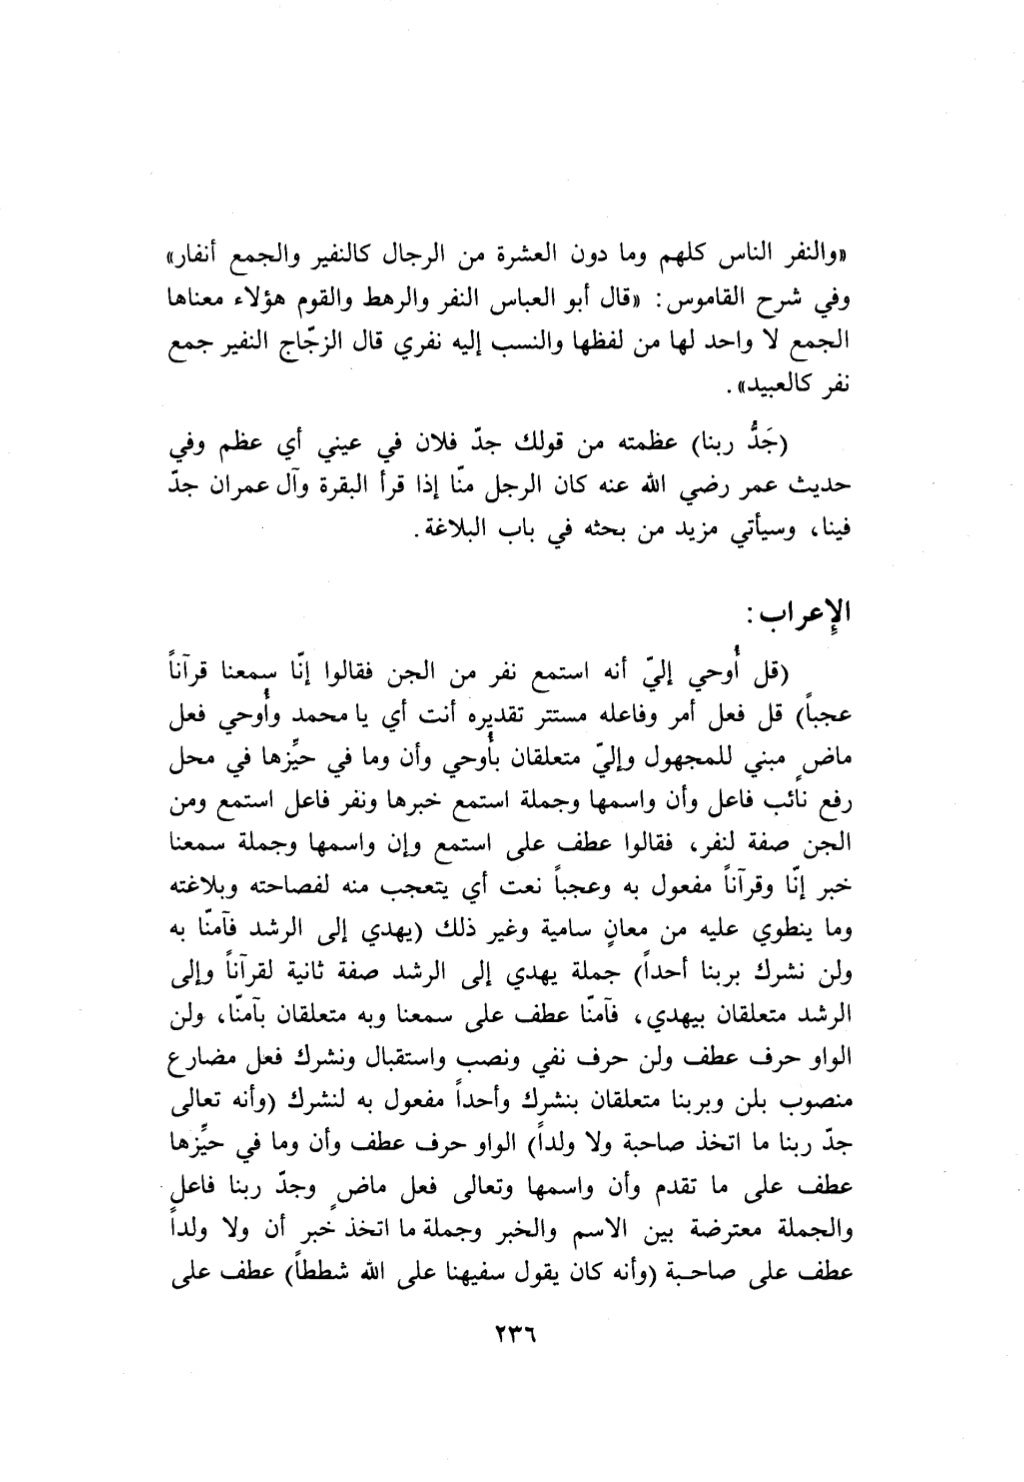 «والنفر الناس كلهم وما دون العشرة من الرجال كالنفير والجمع أنفار»
وفي شرح القاموس: «قال أبو العباس النفر والرهط والقوم هؤلاء معناها
الجمع لا واحد لها من لفظها والنسب إليه نفري قال الزجّاج النفير جمع
نفر كالعبيد».
(جَدُّ ربنا) عظمته من قولك جدّ فلان في عيني أي عظم وفي
حديث عمر رضي الله عنه كان الرجل منّا إذا قرأ البقرة وآل عمران جدّ
فينا، وسيأتي مزيد من بحثه في باب البلاغة.
الإعراب:
(قل أُوحي إليّ أنه استمع نفر من الجن فقالوا إنّا سمعنا قرآناً
عجباً) قل فعل أمر وفاعله مستتر تقديره أنت أي يا محمد وأُوحي فعل
ماضٍ مبني للمجهول وإليّ متعلقان بأُوحي وأن وما في حيِّزها في محل
رفع نائب فاعل وأن واسمها وجملة استمع خبرها ونفر فاعل استمع ومن
الجن صفة لنفر، فقالوا عطف على استمع وإن واسمها وجملة سمعنا
خبر إنّا وقرآناً مفعول به وعجباً نعت أي يتعجب منه لفصاحته وبلاغته
وما ينطوي عليه من معانٍ سامية وغير ذلك (يهدي إلى الرشد فآمنّا به
ولن نشرك بربنا أحداً) جملة يهدي إلى الرشد صفة ثانية لقرآناً وإلى
الرشد متعلقان بيهدي، فآمنّا عطف على سمعنا وبه متعلقان بآمنّا، ولن
الواو حرف عطف ولن حرف نفي ونصب واستقبال ونشرك فعل مضارع
منصوب بلن وبربنا متعلقان بنشرك وأحداً مفعول به لنشرك (وأنه تعالى
جدّ ربنا ما اتخذ صاحبة ولا ولداً) الواو حرف عطف وأن وما في حيِّزها
عطف على ما تقدم وأن واسمها وتعالى فعل ماضٍ وجدّ ربنا فاعل
والجملة معترضة بين الاسم والخبر وجملة ما اتخذ خبر أن ولا ولداً
عطف على صاحبة (وأنه كان يقول سفيهنا على الله شططاً) عطف على
٢٣٦